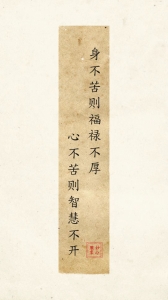 身不苦则福禄不厚
心不苦则智慧不开